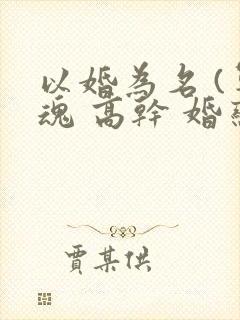 以婚為名(
魂 高幹 婚
賈某供